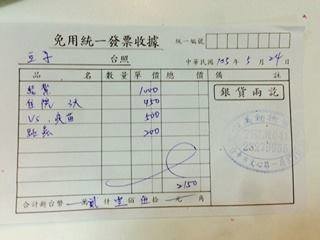 免用統一發票收據
統一編號
豆子 台照 中華民國 105 年 5 月 24 日
品 名 數量 單價 總價 備註
1000 銀貨兩訖
住院 450
VS. 疫苗 500
200
2150
合計新台幣 萬 貳 仟 壹 佰 伍 拾 元 角